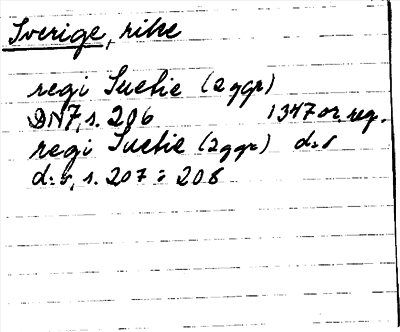 Sverige, rike
regi Suetie (2 ggr)
DN7, s. 206 1347 or. reg.
regi Suetie (2 ggr) d:o
d:o, s. 207 : 208